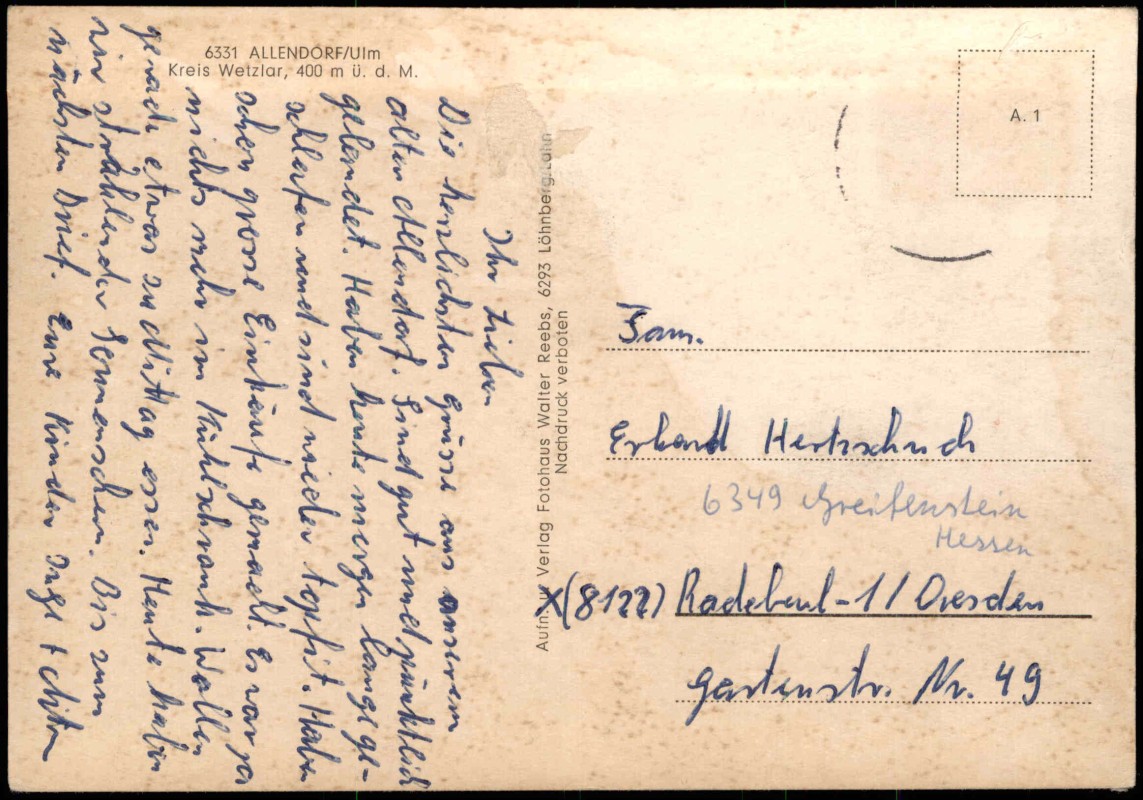 6331 ALLENDORF/Ulm
Kreis Wetzlar, 400 m ü. d. M.
Ihr Lieben
Die herzlichsten Grüsse aus unserem
alten Allendorf. Sind gut und pünktlich
gelandet. Haben heute morgen lange ge-
schlafen und sind wieder topfit. Haben
schon grosse Einkäufe gemacht. Es war ja
nichts mehr im Kühlschrank. Wollen
gerade etwas zu Mittag essen. Heute haben
wir strahlender Sonnenschein. Bis zum
nächsten Brief. Eure Kinder Inge +
Aufn. u. Verlag Fotohaus Walter Reebs, 6293 Löhnberg/Lahn
Nachdruck verboten
A. 1
Fam.
Erhard Hertzschuch
6349 Greifenstein
Hessen
X (8122) Radebeul-1 / Dresden
Gartenstr. Nr. 49